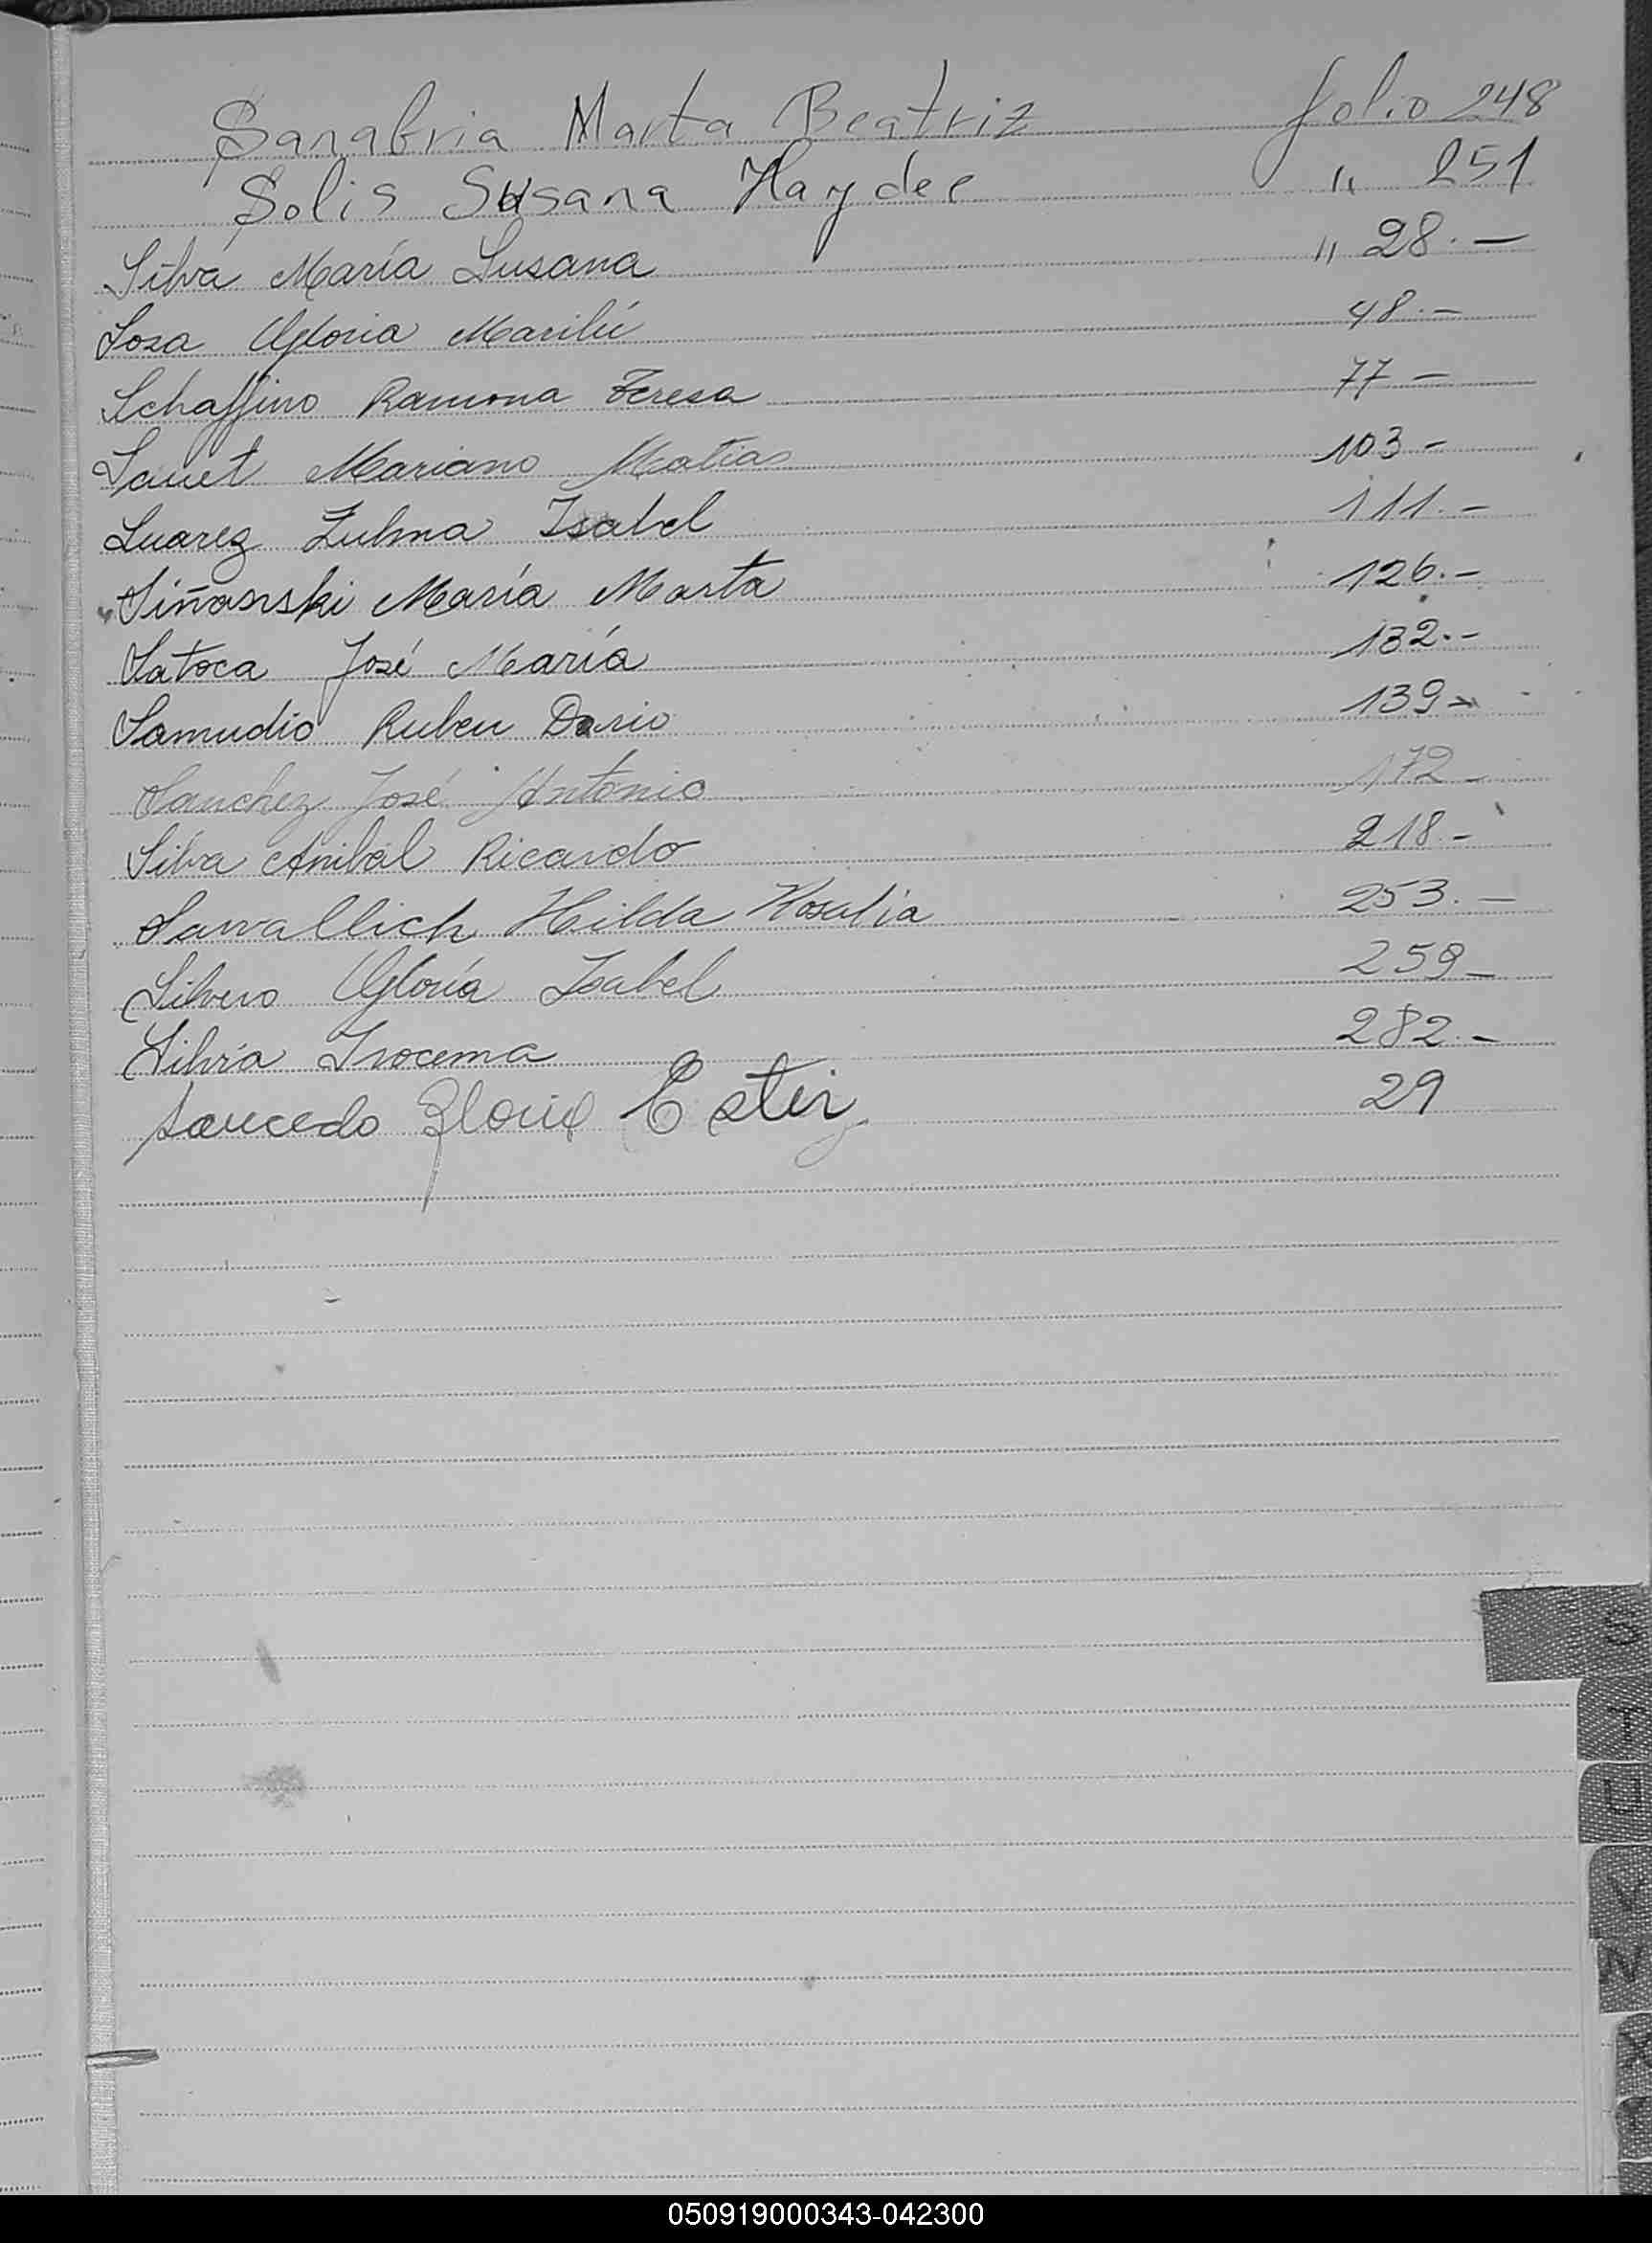 Sanabria Marta Beatriz folio 248
Solis Susana Haydee " 251
Silva María Susana " 28.-
Sosa Gloria Marilú 48.-
Schaffino Ramona Teresa 77-
Sauet Mariano Matias 103-
Suarez Zulma Isabel 111.-
Siñanski María Marta 126.-
Satoca José María 132.-
Samudio Ruben Dario 139-
Sanchez José Antonio 172-
Silva Anibal Ricardo 218.-
Savallich Hilda Rosalía 253.-
Silvero Gloría Isabel 259-
Silvia Irocema 282.-
Saucedo Ester 29
S
T
U
V
Z
X
050919000343-042300